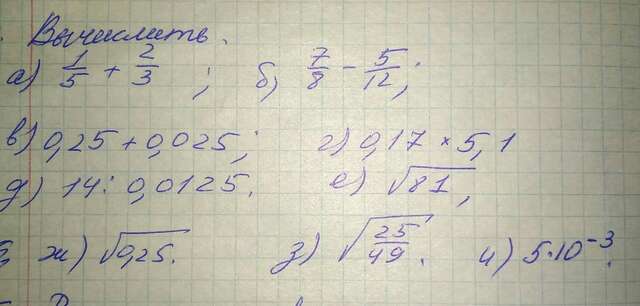 Вычислить.
а) 1/5 + 2/3 ; б) 7/8 - 5/12;
в) 0,25 + 0,025; г) 0,17 × 5,1
д) 14 : 0,0125. е) √81,
ж) √0,25. з) √25/49. и) 5·10⁻³.